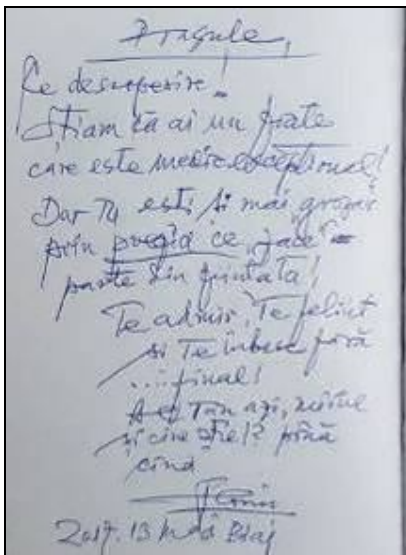 Dragule,
Ce descoperire!
Știam că ai un frate
care este medic excepțional!
Dar Tu ești și mai grozav
prin poezia ce „face”
parte din ființa ta!
Te admir, Te felicit
și Te iubesc fără
...final!
azi, mîine
și cine știe!? pînă
cînd
2017. 13 mai Blaj